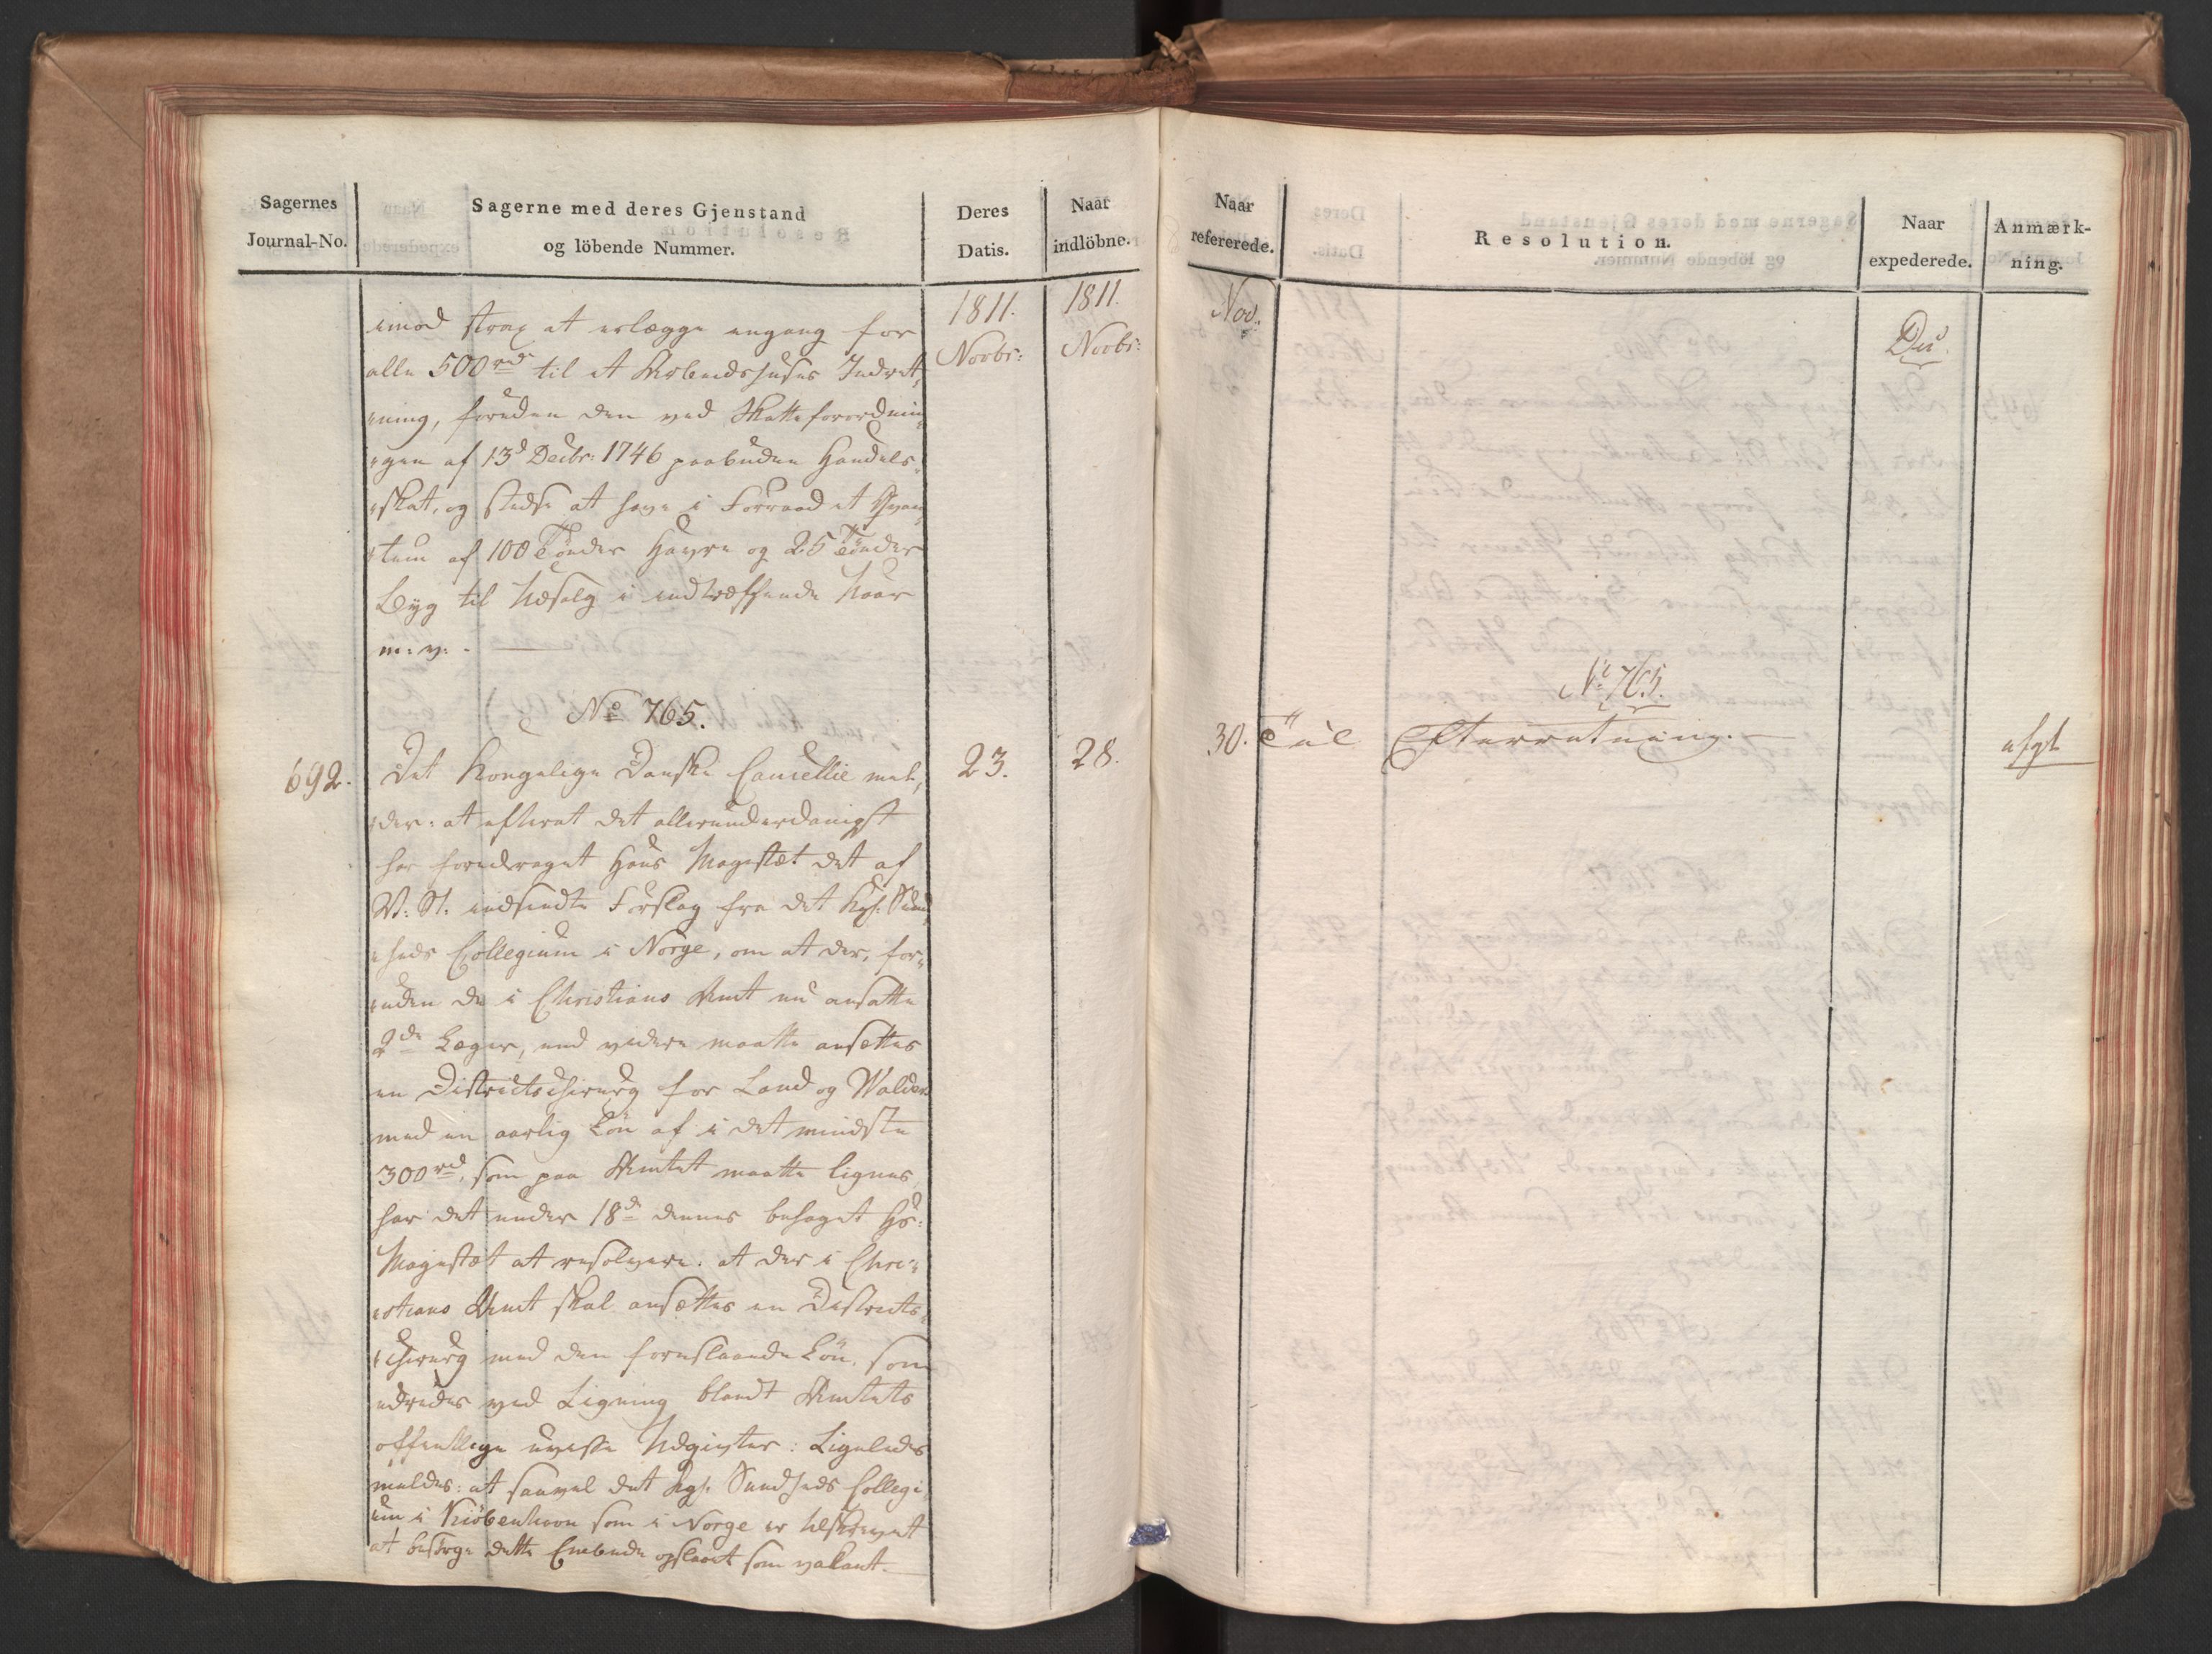 Sagernes
Journal-No.
Sagerne med deres Gjenstand
og löbende Nummer.
Deres
Datis.
Naar
indlöbne.
1811.
Novbr:
1811.
Novbr:
imod strax at erlægge engang for
alle 500 rdr til et Arbeidshuses Indret-
ning, foruden den ved Skatteforordnin-
gen af 13d Decbr: 1746 paabudne Handels-
skat, og stedse at have i Forraad et Qvan-
tum af 100 Tönder Havre og 25 Tönder
Byg til Udsalg i indtræffende Uaar
m: v: -
No 765.
692.
Det Kongelige Danske Cancellie mel-
der: at efterat det allerunderdanigst
har foredraget Hans Majestæt det af
V: St. indsendte Forslag fra det Kgl. Sund-
heds Collegium i Norge, om at der, for-
uden de i Christians Amt nu ansatte
2de Læger, end videre maatte ansættes
en Districtschirurg for Land og Valders
med en aarlig Lön af i det mindste
300 rd, som paa Amtet maatte lignes,
har det under 18de dennes behaget Hs:
Majestæt at resolvere: at der i Chri-
stians Amt skal ansættes en Districts-
chirurg med den foreslaaede Lön, som
udredes ved Ligning blandt Amtets
offentlige uvisse Udgivter: Ligeledes
meldes: at saavel det Kgl. Sundheds Collegi-
um i Kiöbenhavn som i Norge er tilskrevet
at besörge dette Embede opslaaet som vakant.
23.
28.
Naar
refererede.
Resolution.
Naar
expederede.
Anmærk-
ning.
Nov:
No 765.
30. Til Efterretning.
afgt